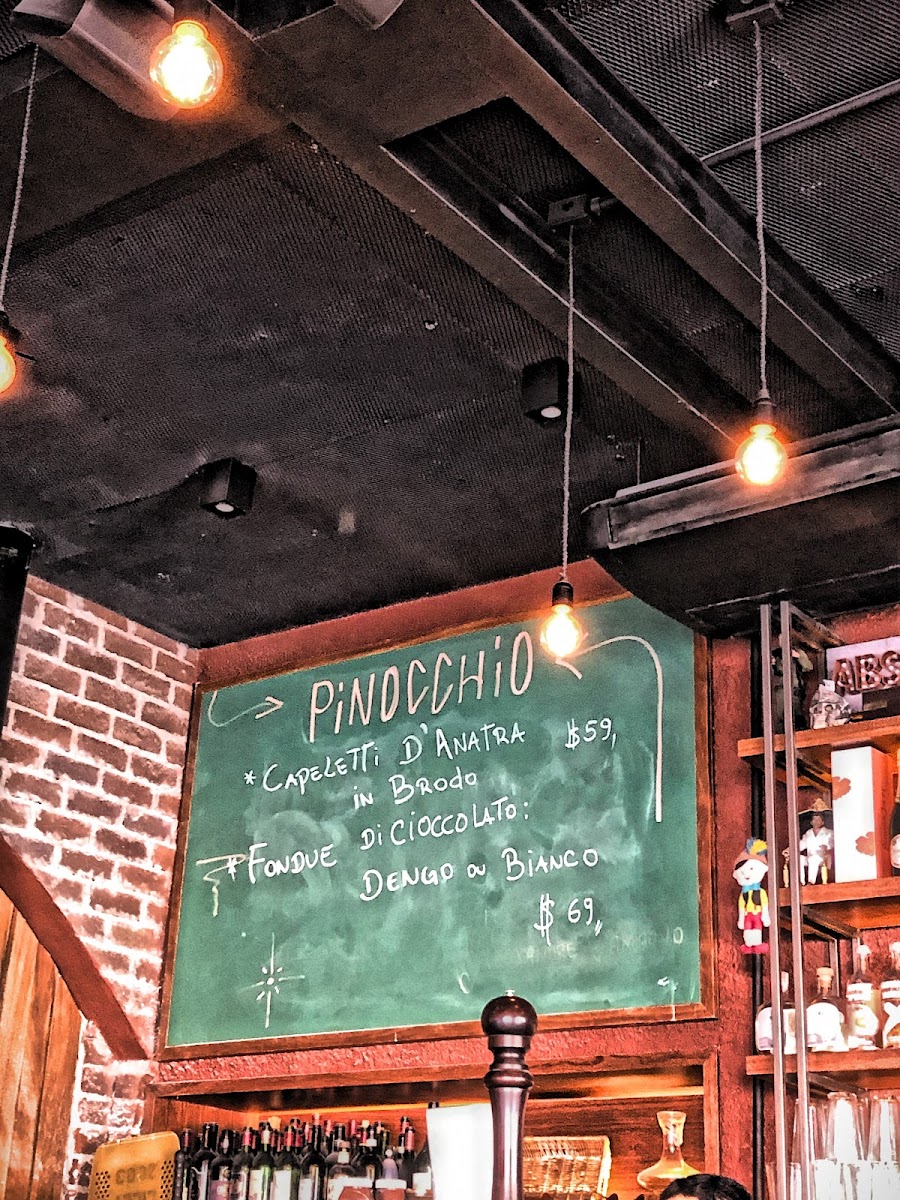 PiNOCCHiO
* CAPELETTi D'ANATRA $59,
iN BRODO
* FONDUE Di CiOCCOLATO:
DENGO OU BIANCO
$ 69,,
ABS